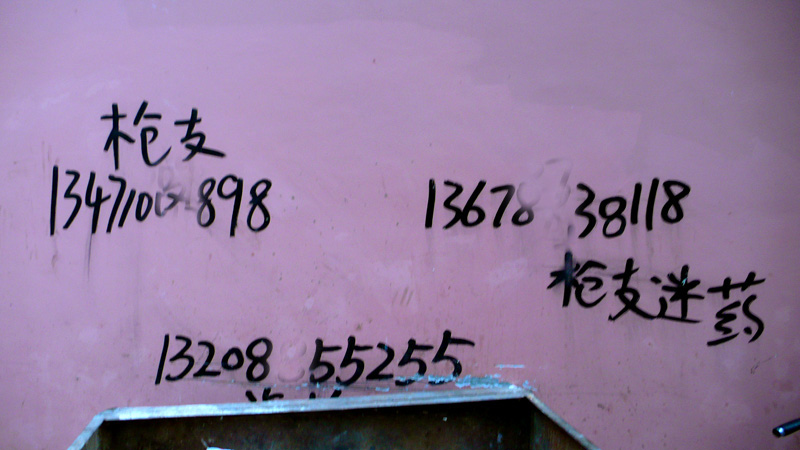 枪支
134710 898
13678 38118
枪支迷药
13208 55255